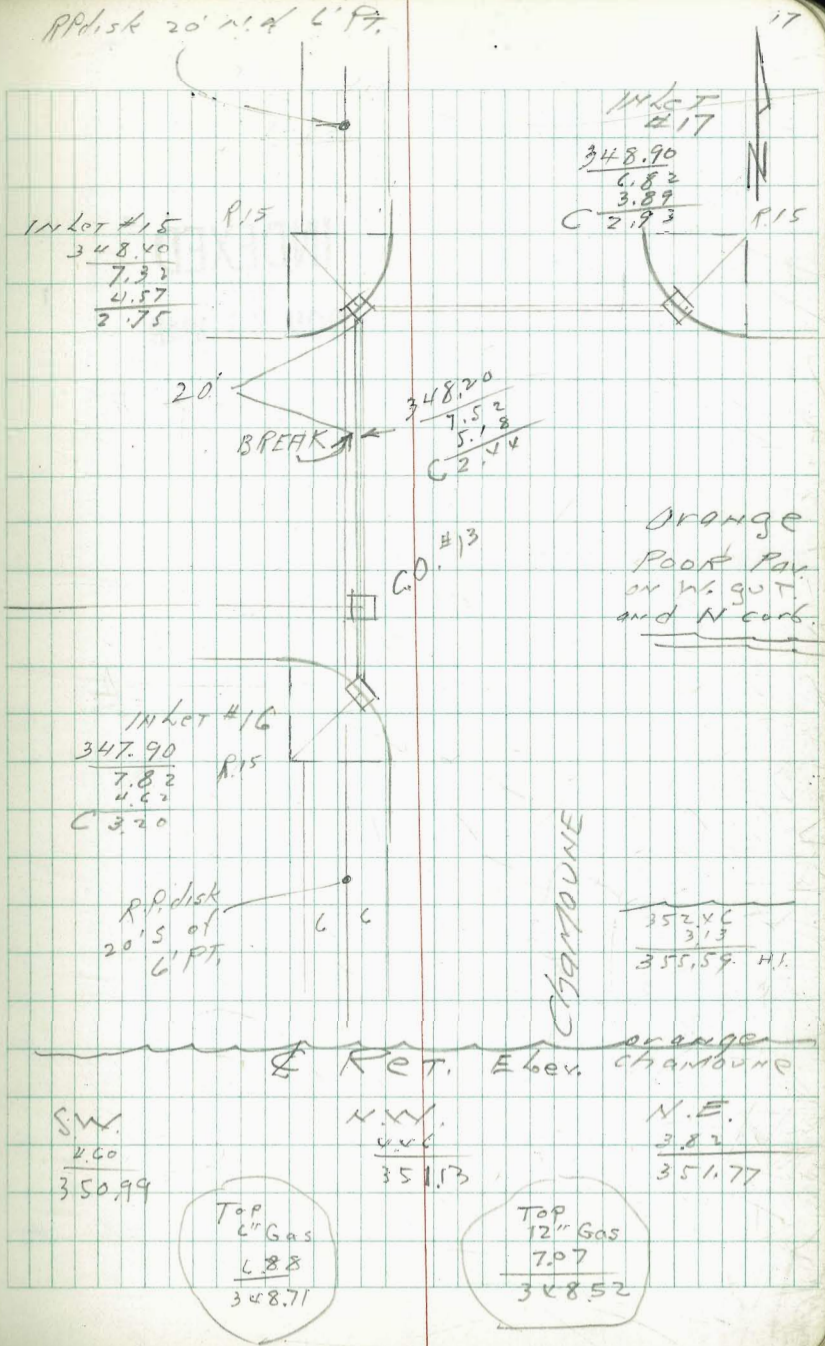 17
R.P. disk 20' N. of 6' P.T.
INLET
#17
348.90
6.82
3.89
C 2.93
R.15
N
INLET #15
348.40
7.32
4.57
2.75
R.15
20'
BREAK
348.20
7.52
5.18
C 2.44
C.O. #13
Orange
Poor Pav.
on W. gut.
and N curb.
INLET #16
347.90
7.82
4.62
C 3.20
R.15
R.P. disk
20' S of
6' PT.
6 6
Chamoune
352.46
3.13
355.59 H.I.
℄ Ret. Elev. orange
chamoune
S.W.
4.60
350.99
N.W.
4.46
351.13
N.E.
3.82
351.77
Top
6" Gas
6.88
348.71
Top
12" Gas
7.07
348.52